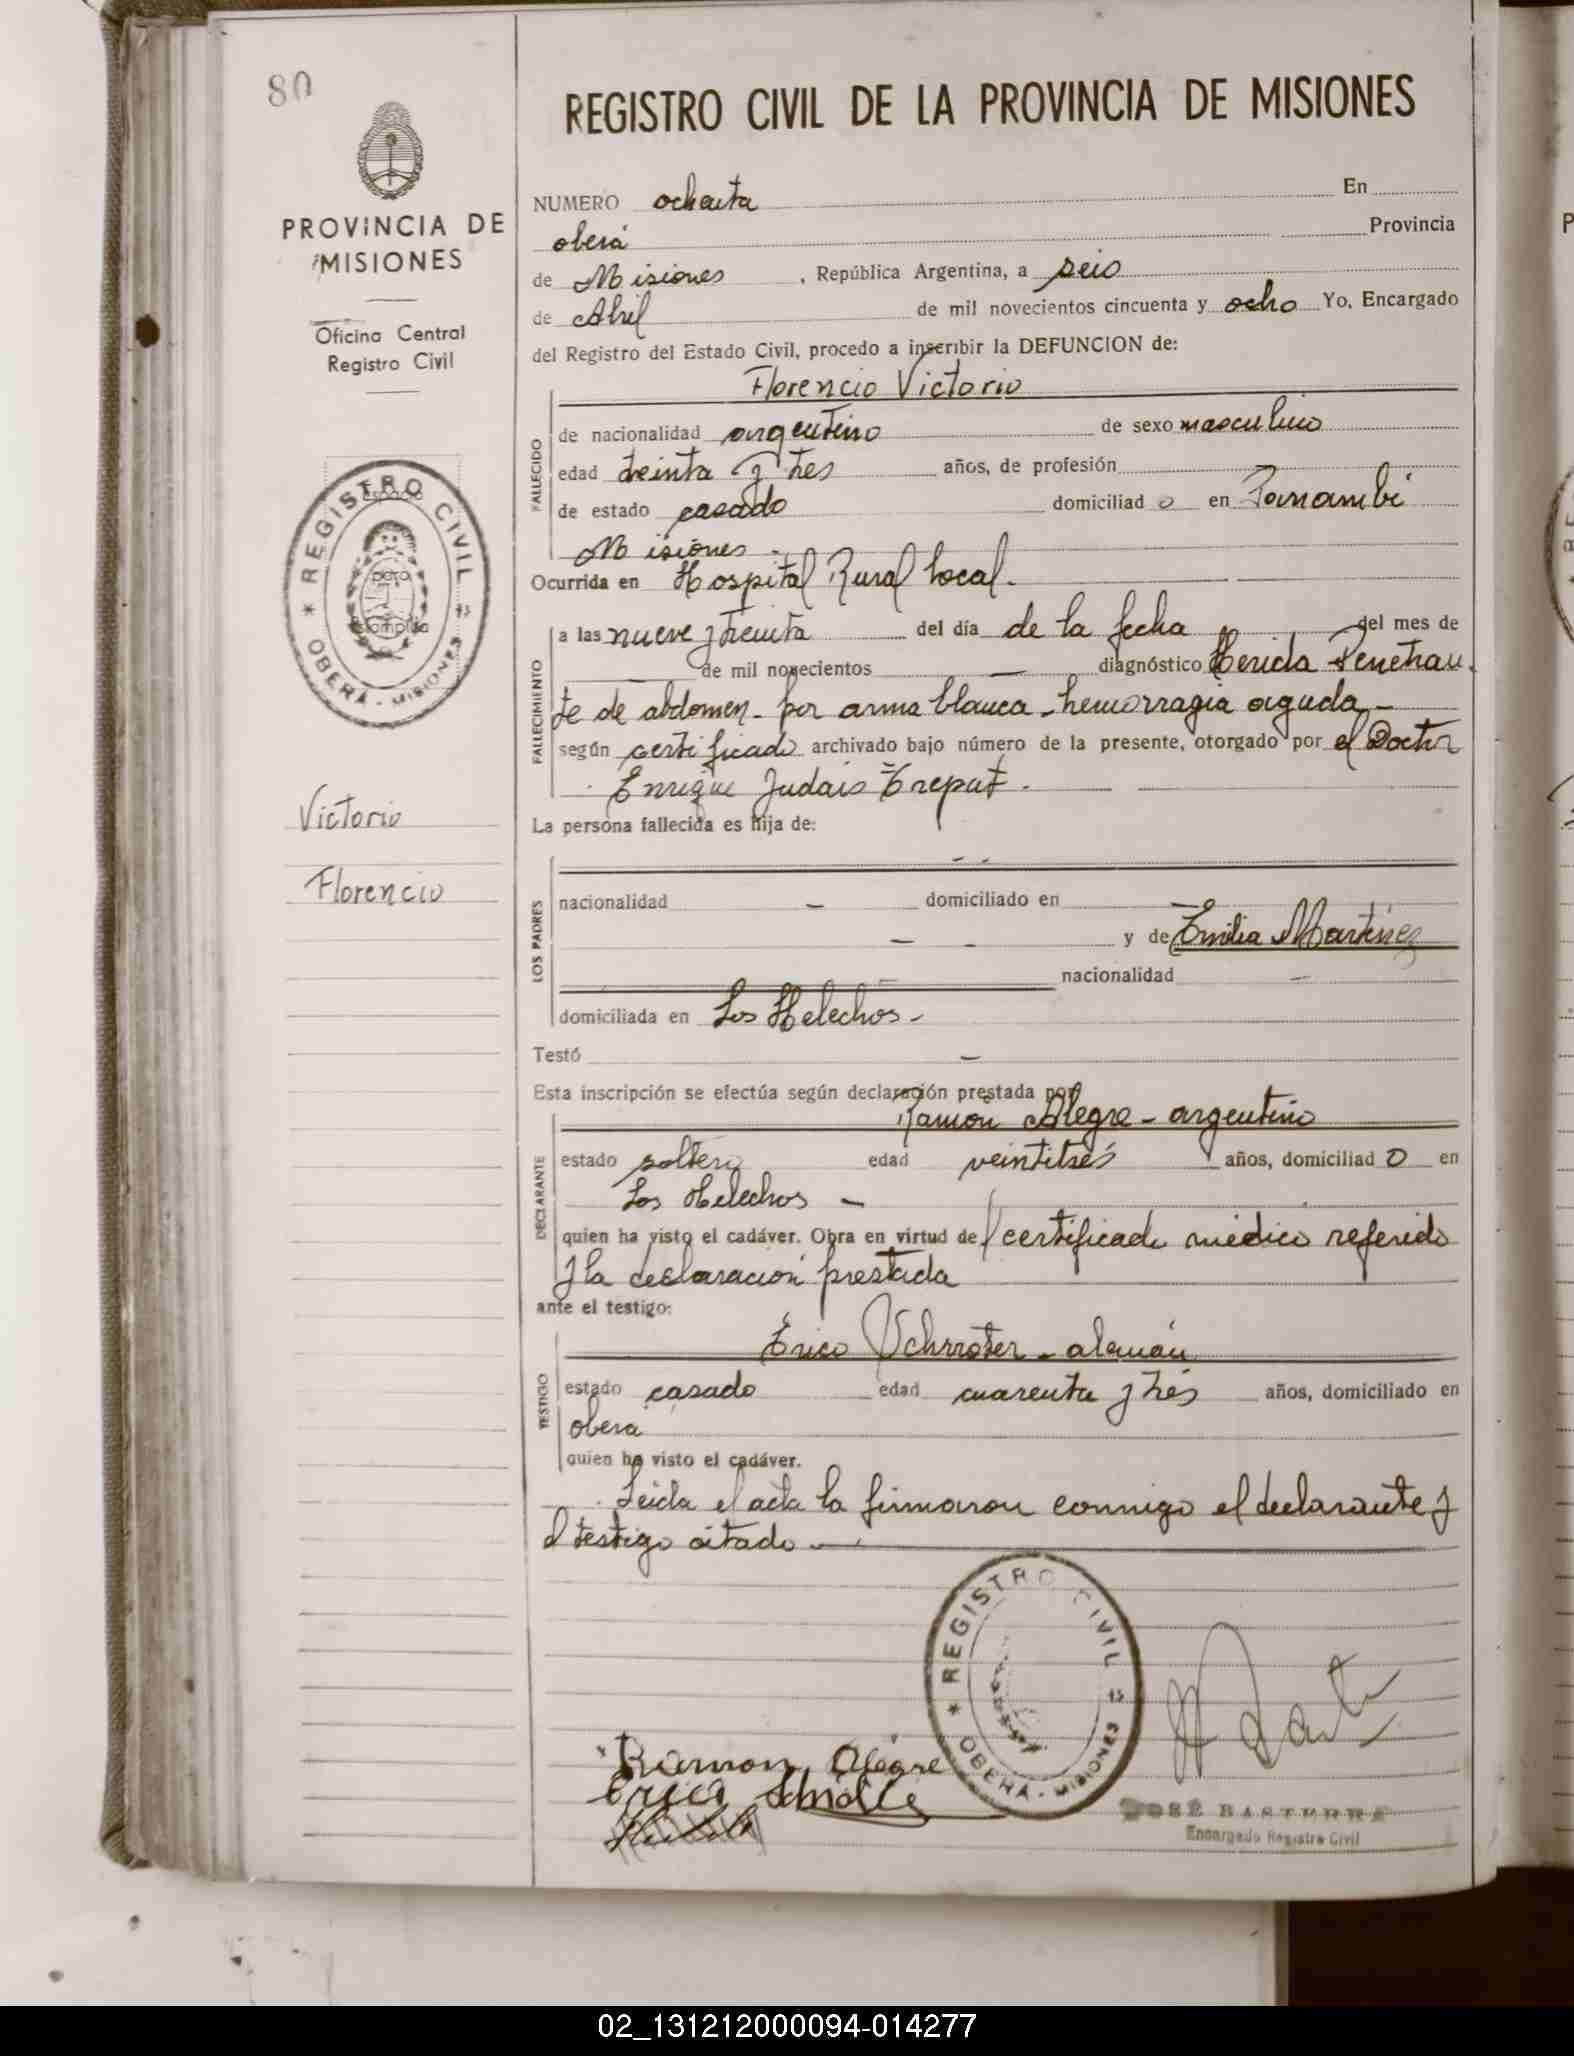 80
REGISTRO CIVIL DE LA PROVINCIA DE MISIONES
PROVINCIA DE
MISIONES
Oficina Central
Registro Civil
NUMERO ochenta En
oberá Provincia
de Misiones , República Argentina, a seis
de Abril de mil novecientos cincuenta y ocho Yo, Encargado
del Registro del Estado Civil, procedo a inscribir la DEFUNCION de:
Florencio Victorio
FALLECIDO
de nacionalidad argentino de sexo masculino
edad treinta y tres años, de profesión
de estado casado domiciliad o en Panambi
Misiones -
REGISTRO CIVIL
espacio
para
estampilla
OBERÁ - MISIONES
Ocurrida en Hospital Rural local.
FALLECIMIENTO
a las nueve y treinta del día de la fecha del mes de
— de mil novecientos — diagnóstico Herida Penetran
te de abdomen - por arma blanca - hemorragia aguda -
según certificado archivado bajo número de la presente, otorgado por el Doctor
Enrique Judais Trepat.
Victorio
Florencio
La persona fallecida es hija de:
LOS PADRES
nacionalidad — domiciliado en —
— - y de Emilia Martínez
nacionalidad —
domiciliada en Los Helechos -
Testó —
Esta inscripción se efectúa según declaración prestada por
Ramón Alegre - argentino
DECLARANTE
estado soltero edad veintitrés años, domiciliad o en
Los Helechos —
quien ha visto el cadáver. Obra en virtud del certificado médico referido
y la declaración prestada
ante el testigo:
Erico Schrroter - alemán
TESTIGO
estado casado edad cuarenta y tres años, domiciliado en
oberá
quien ha visto el cadáver.
Leida el acta la firmaron conmigo el declarante y
el testigo citado —
REGISTRO CIVIL
OBERÁ - MISIONES
Ramon Alegre
Erico
JOSÉ BASTERRA
Encargado Registro Civil
02_131212000094-014277